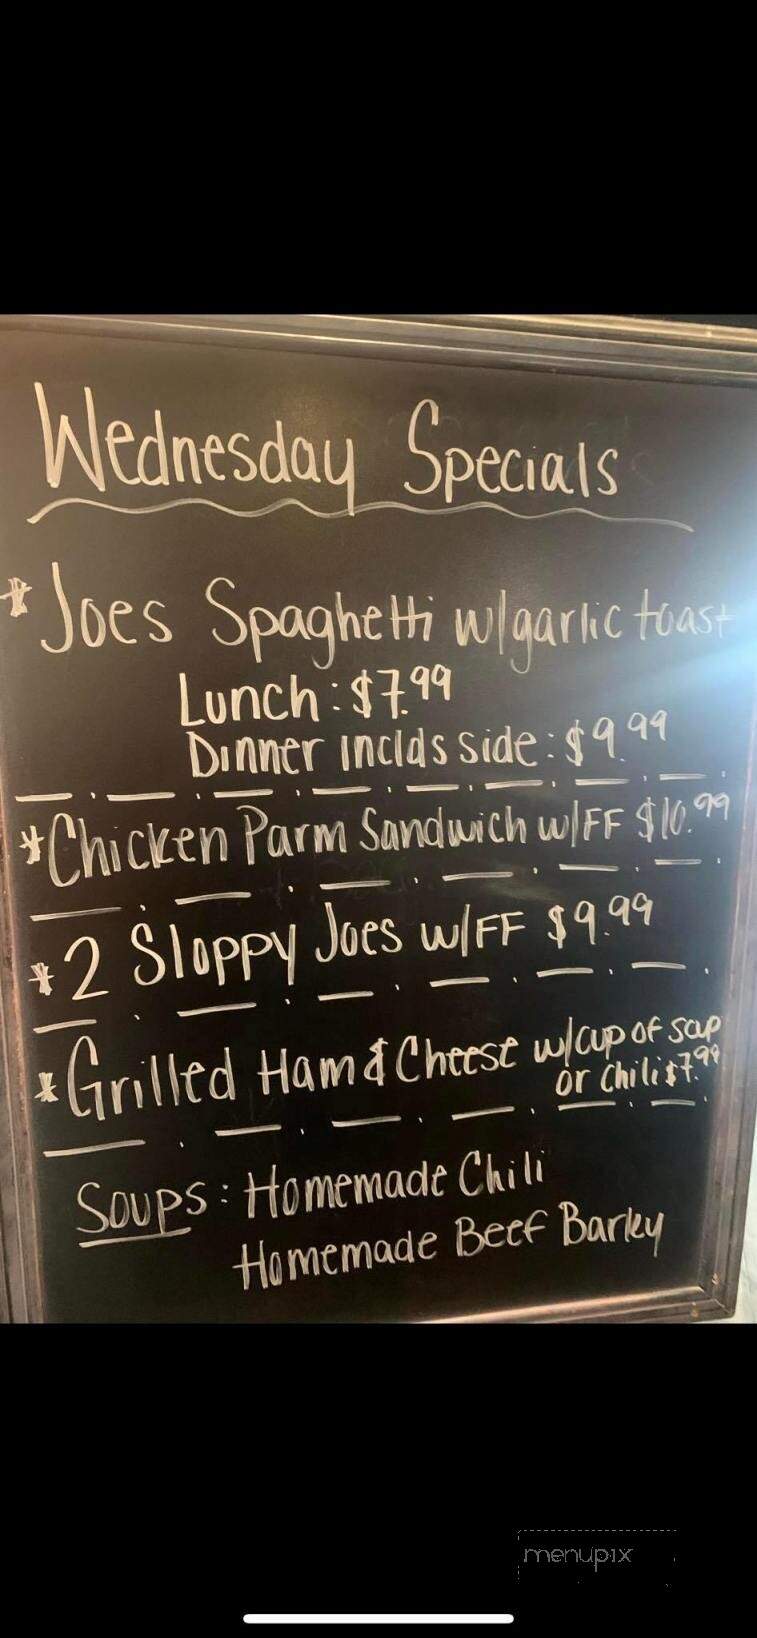 Wednesday Specials
*Joes Spaghetti w/garlic toast
Lunch: $7.99
Dinner inclds side: $9.99
*Chicken Parm Sandwich w/FF $10.99
*2 Sloppy Joes w/FF $9.99
*Grilled Ham & Cheese w/cup of soup
or chili $7.99
Soups: Homemade Chili
Homemade Beef Barley
menupix